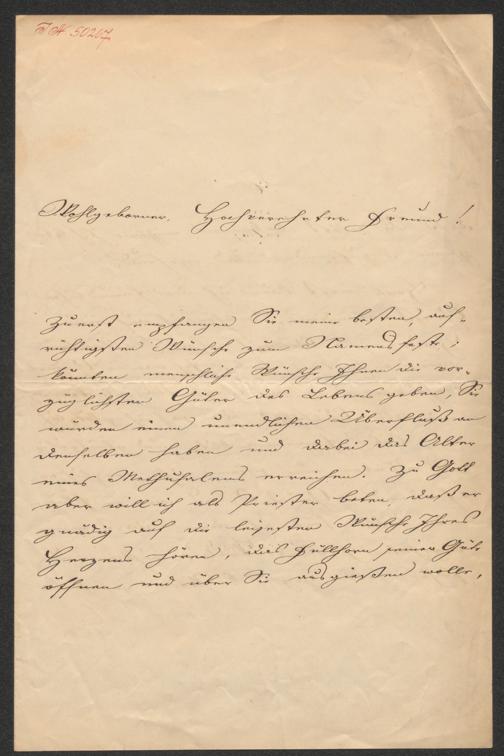 I. N. 50207
Wohlgeborner, Hochverehrter Freund!
Zuerst empfangen Sie meine besten, auf-
richtigsten Wünsche zum Namensfeste;
könnten menschliche Wünsche Ihnen die vor-
züglichsten Güter des Lebens geben, Sie
würden einen unendlichen Überfluß an
denselben haben und dabei das Alter
eines Methusalems erreichen. Zu Gott
aber will ich als Priester beten, daß er
gnädig auf die leisesten Wünsche Ihres
Herzens hören, das Füllhorn seiner Güte
öffnen und über Sie ausgießen wolle,